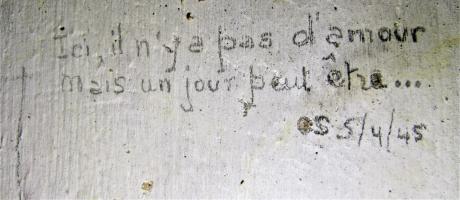 Ici, il n'y a pas d'amour
mais un jour peut être...
es 5/4/45